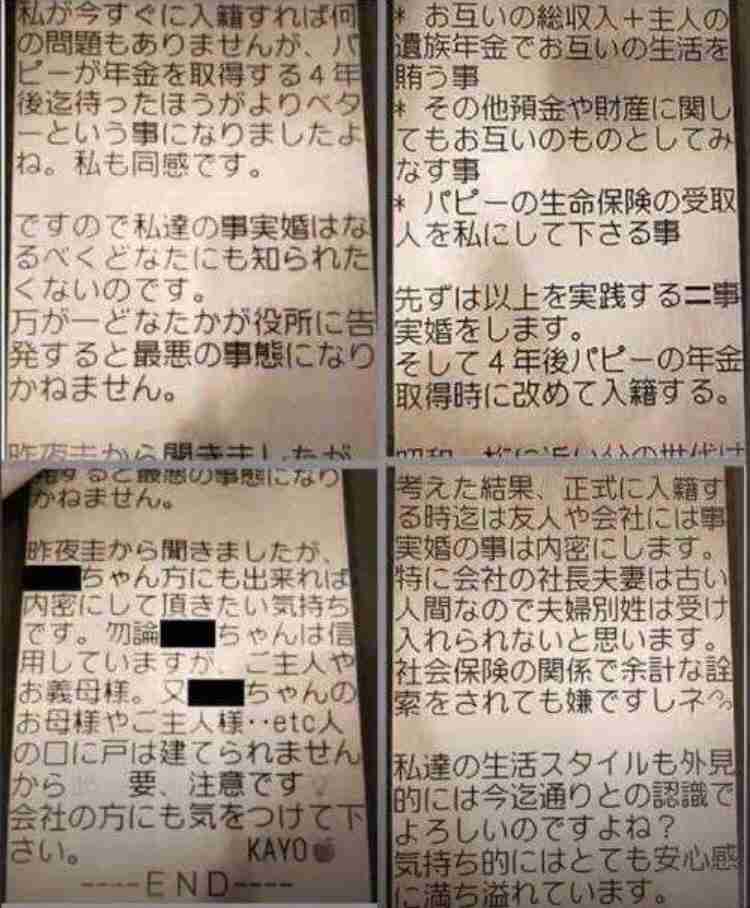 私が今すぐに入籍すれば何
の問題もありませんが、パ
ピーが年金を取得する4年
後迄待ったほうがよりベタ
ーという事になりましたよ
ね。私も同感です。
ですので私達の事実婚はな
るべくどなたにも知られた
くないのです。
万が一どなたかが役所に告
発すると最悪の事態になり
かねません。
昨夜圭から聞きましたが
* お互いの総収入+主人の
遺族年金でお互いの生活を
賄う事
* その他預金や財産に関し
てもお互いのものとしてみ
なす事
* パピーの生命保険の受取
人を私にして下さる事
先ずは以上を実践する=事
実婚をします。
そして4年後パピーの年金
取得時に改めて入籍する。
発すると最悪の事態になり
かねません。
昨夜圭から聞きましたが、
ちゃん方にも出来れば
内密にして頂きたい気持ち
です。勿論ちゃんは信
用していますが、ご主人や
お義母様。又ちゃんの
お母様やご主人様‥etc人
の口に戸は建てられません
から 要、注意です
会社の方にも気をつけて下
さい。 KAYO🍎
----END----
考えた結果、正式に入籍す
る時迄は友人や会社には事
実婚の事は内密にします。
特に会社の社長夫妻は古い
人間なので夫婦別姓は受け
入れられないと思います。
社会保険の関係で余計な詮
索をされても嫌ですしネ
私達の生活スタイルも外見
的には今迄通りとの認識で
よろしいのですよね?
気持ち的にはとても安心感
に満ち溢れています。